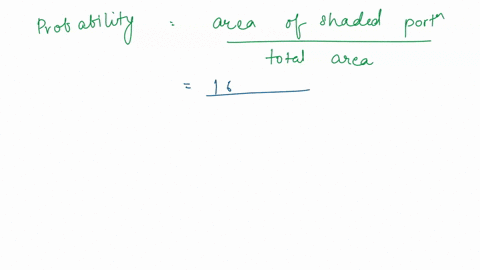 Probability : area of shaded portⁿ
total area
= 16